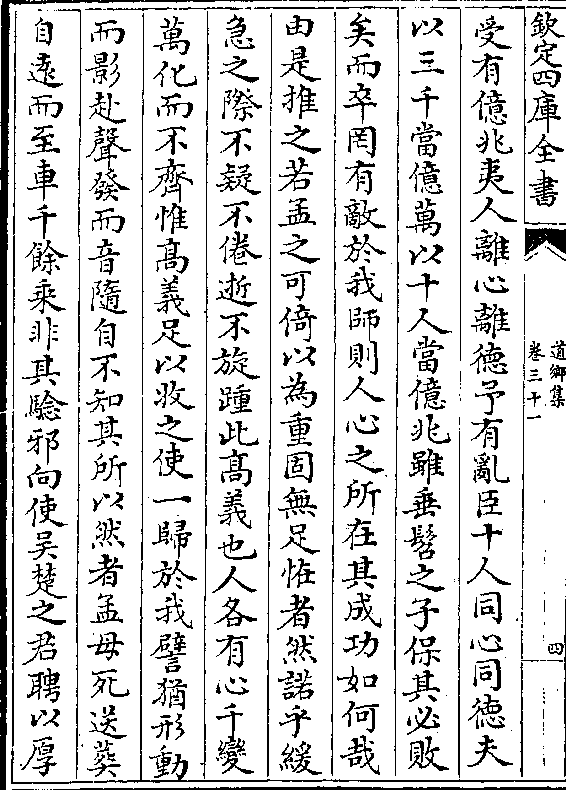 欽定四庫全書
道鄉集
卷三十一
四
受有億兆夷人離心離德予有亂臣十人同心同德夫
以三千當億萬以十人當億兆雖垂髫之子保其必敗
矣而卒罔有敵於我師則人心之所在其成功如何哉
由是推之若孟之可倚以為重固無足怪者然諾乎緩
急之際不疑不倦逝不旋踵此髙義也人各有心千變
萬化而不齊惟髙義足以收之使一歸於我譬猶形動
而影赴聲發而音隨自不知其所以然者孟母死送葬
自遠而至車千餘乗非其驗邪向使吴楚之君聘以厚